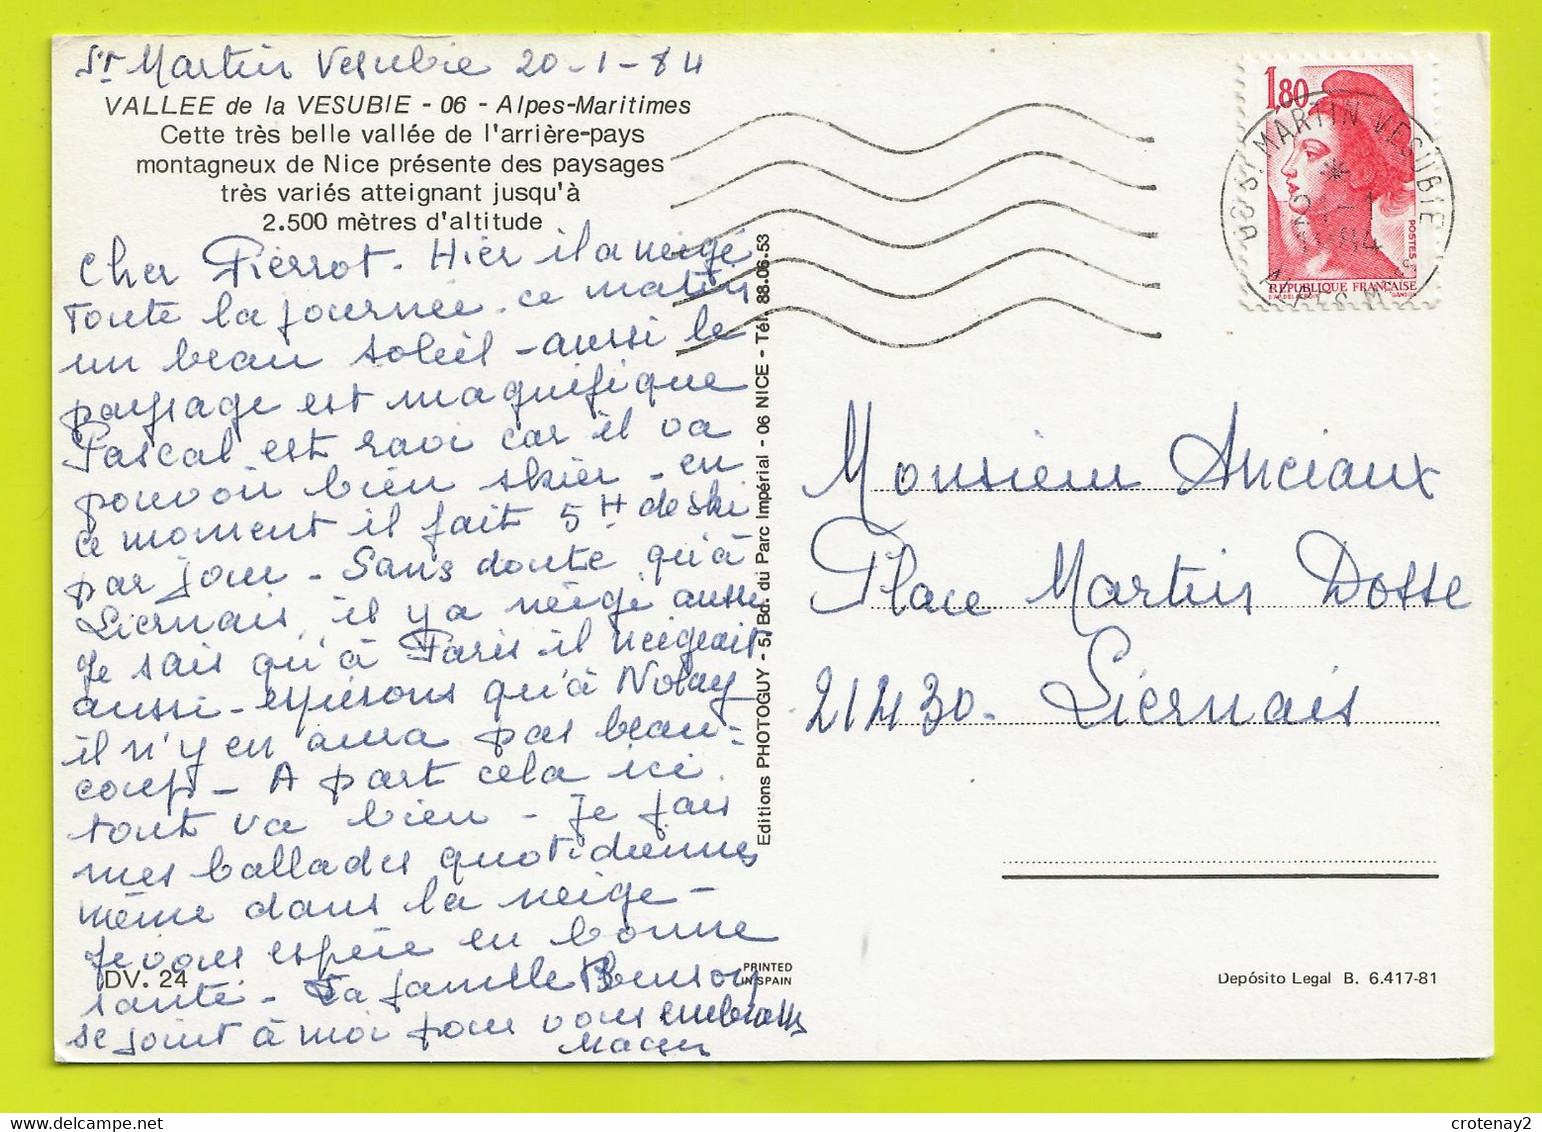 St Martin Vesubie 20-1-84
VALLEE de la VESUBIE - 06 - Alpes-Maritimes
Cette très belle vallée de l'arrière-pays
montagneux de Nice présente des paysages
très variés atteignant jusqu'à
2.500 mètres d'altitude
Cher Pierrot. Hier il a neigé
toute la journée. ce matin
un beau soleil - aussi le
paysage est magnifique
Pascal est ravi car il va
pouvoir bien skier - en
ce moment il fait 5 H de ski
par jour - Sans doute qu'à
Liernais, il y a neigé aussi
Je sais qu'à Paris il neigeait
aussi - espérons qu'à Nolay
il n'y en aura pas beau-
coup - A part cela ici
tout va bien - Je fais
mes ballades quotidiennes
même dans la neige -
Je vous espère en bonne
santé - La famille
se joint à moi pour vous embrasser
DV. 24
PRINTED
IN SPAIN
Editions PHOTOGUY - 5, Bd. du Parc Impérial - 06 NICE - Tél. 88.06.53
1,80
POSTES
REPUBLIQUE FRANÇAISE
GANDON
06 ST MARTIN VESUBIE
21-1
84
Monsieur Anciaux
Place Martin Dosse
21430. Liernais
Depósito Legal B. 6.417-81
crotenay2